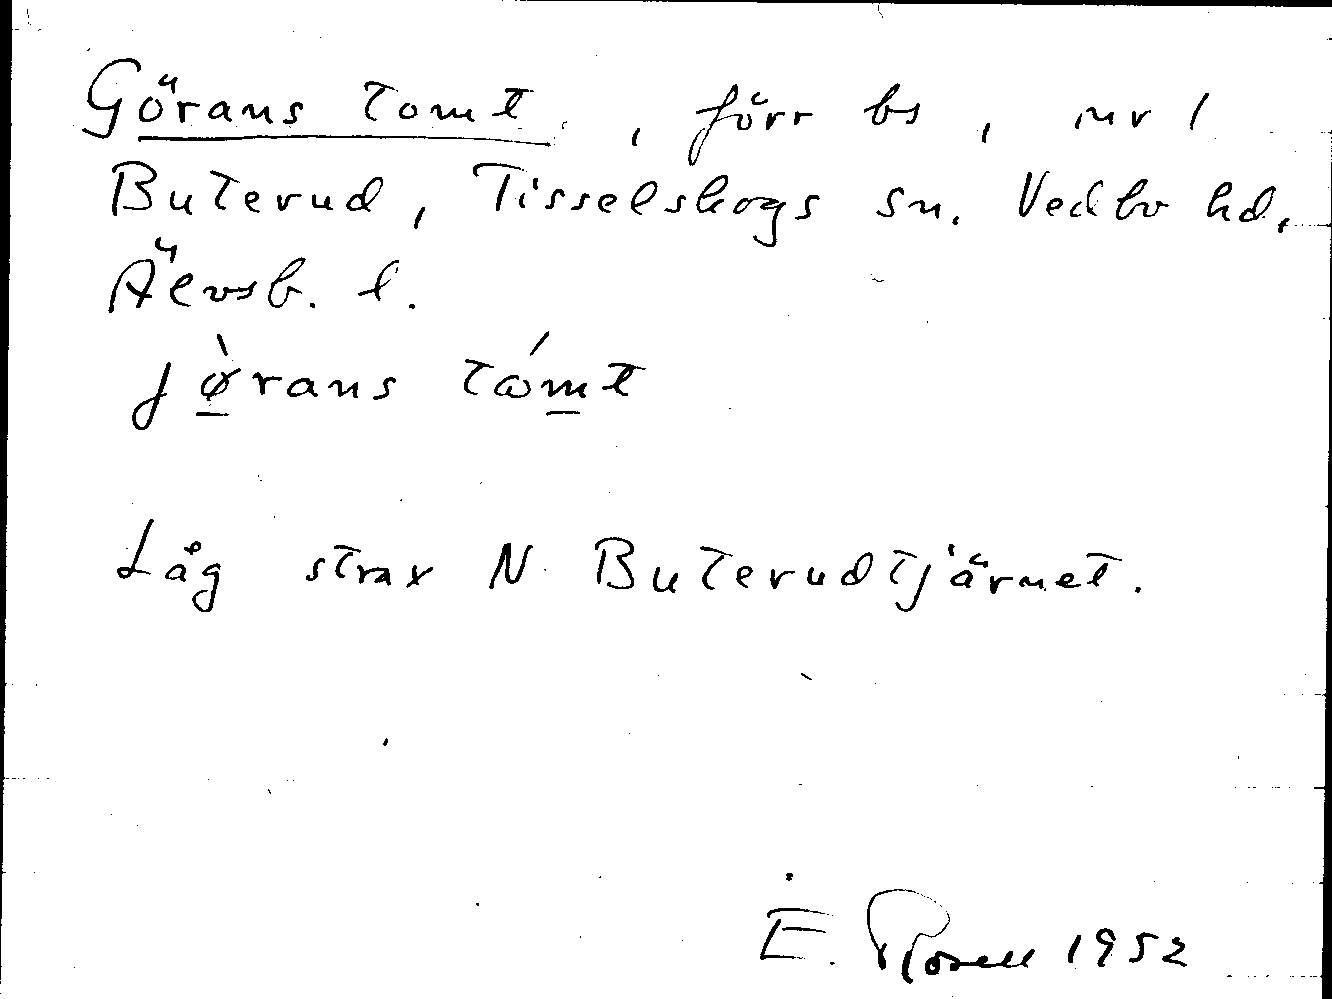 Görans tomt, förr bs, nr 1
Buterud, Tisselskogs sn. Vedbo hd.
Älvsb. l.
jø̀rans tómt
Låg strax N Buterudtjärnet.
E. Rosell 1952